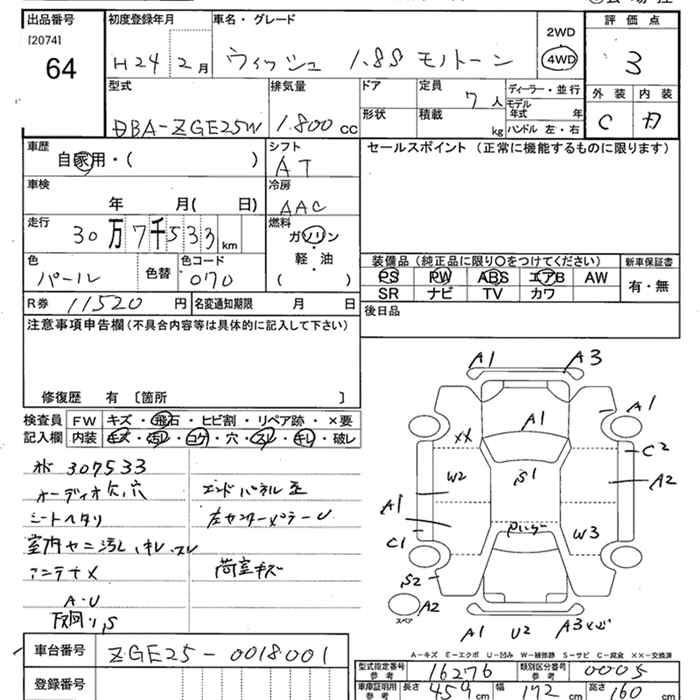 出品番号 初度登録年月 車名・グレード 評価点
[2074] 64 H24 2月 ウィッシュ 1.8S モノトーン 2WD 4WD 3
型式 排気量 ドア 定員 7人 ディーラー・並行 外装 内装
DBA-ZGE25W 1.800cc 形状 積載 kg モデル年式 年 ハンドル 左・右 C D
車歴 自家用・( ) シフト AT セールスポイント (正常に機能するものに限ります)
車検 年 月( 日) 冷房 AAC
走行 30万7千533km 燃料 ガソリン 軽・油 ( )
色 パール 色替 色コード 070
装備品 (純正品に限り○をつけてください) 新車保証書
PS PW ABS エアB AW 有・無
SR ナビ TV カワ
R券 11520円 名変通知期限 月 日 後日品
注意事項申告欄(不具合内容等は具体的に記入して下さい)
修復歴 有 〔箇所 〕
検査員 FW キズ・飛石・ヒビ割・リペア跡・×要
記入欄 内装 キズ・汚レ・コゲ・穴・スレ・キレ・破レ
307533
オーディオ欠、穴 エンドパネル
シートヘタリ
室内ヤニ汚レ、キレ、スレ
アンテナ× 荷室キズ
A・U
下廻り、S
A1 A3
A1 A1
XX C2
W2 S1 A2
A1
C1 W3
S2
スペア A2
A1 U2 A3
A-キズ E-エクボ U-凹み W-補修跡 S-サビ C-腐食 ××-交換済
車台番号 ZGE25-0018001
登録番号
型式指定番号 参考 16276 類別区分番号 参考 0005
車庫証明用 参考 長さ 459cm 幅 172cm 高さ 160cm